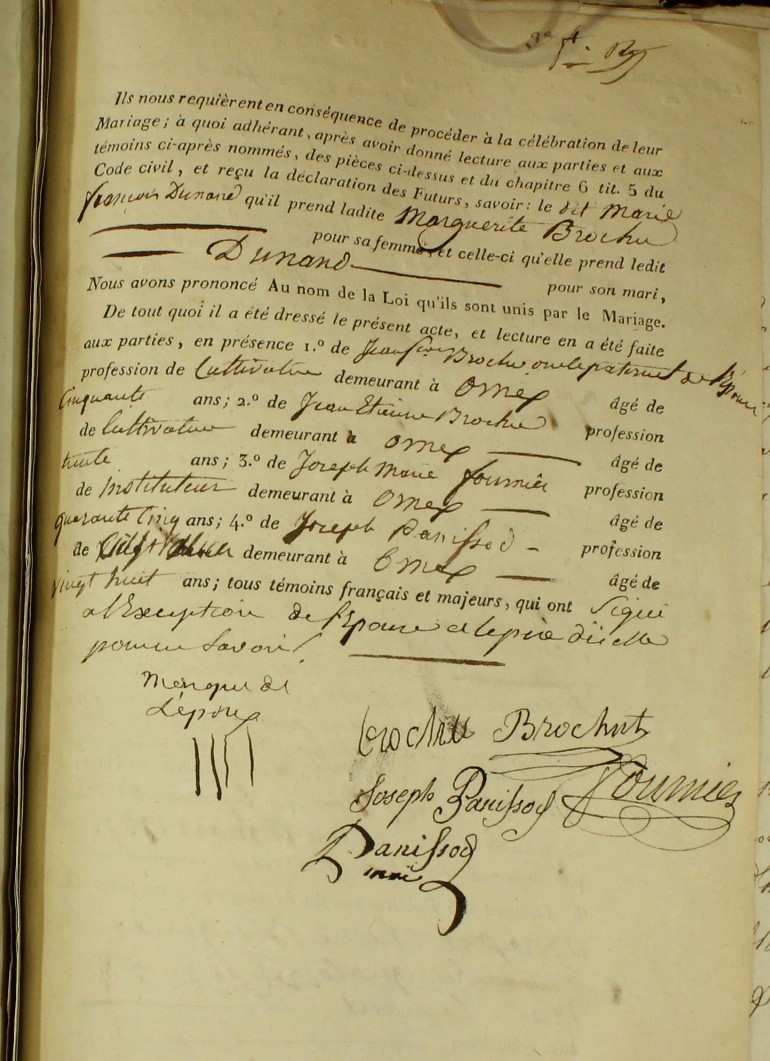 Ils nous requièrent en conséquence de procéder à la célébration de leur
Mariage; à quoi adhérant, après avoir donné lecture aux parties et aux
témoins ci-après nommés, des pièces ci-dessus et du chapitre 6 tit. 5 du
Code civil, et reçu la déclaration des Futurs, savoir: le dit Marie
françois Dunand qu'il prend ladite Marguerite Brochu
pour sa femme, et celle-ci qu'elle prend ledit
Dunand pour son mari,
Nous avons prononcé Au nom de la Loi qu'ils sont unis par le Mariage.
De tout quoi il a été dressé le présent acte, et lecture en a été faite
aux parties, en présence 1.º de Jean fçois Broche oncle paternel de l'épouse
profession de Cultivateur demeurant à Omex âgé de
Cinquante ans; 2.º de Jean Etienne Brochu profession
de Cultivateur demeurant à Omex âgé de
trente ans; 3.º de Joseph Marie fournier profession
de instituteur demeurant à Omex âgé de
quarante Cinq ans; 4.º de Joseph Panissod profession
de demeurant à Omex âgé de
vingt huit ans; tous témoins français et majeurs, qui ont Signé
a l'Exception de l'Epouse et le père d'icelle
pour ne Savoir
Marque de
L'épouse
Brochut
Joseph Panissod Fournier
Panissod